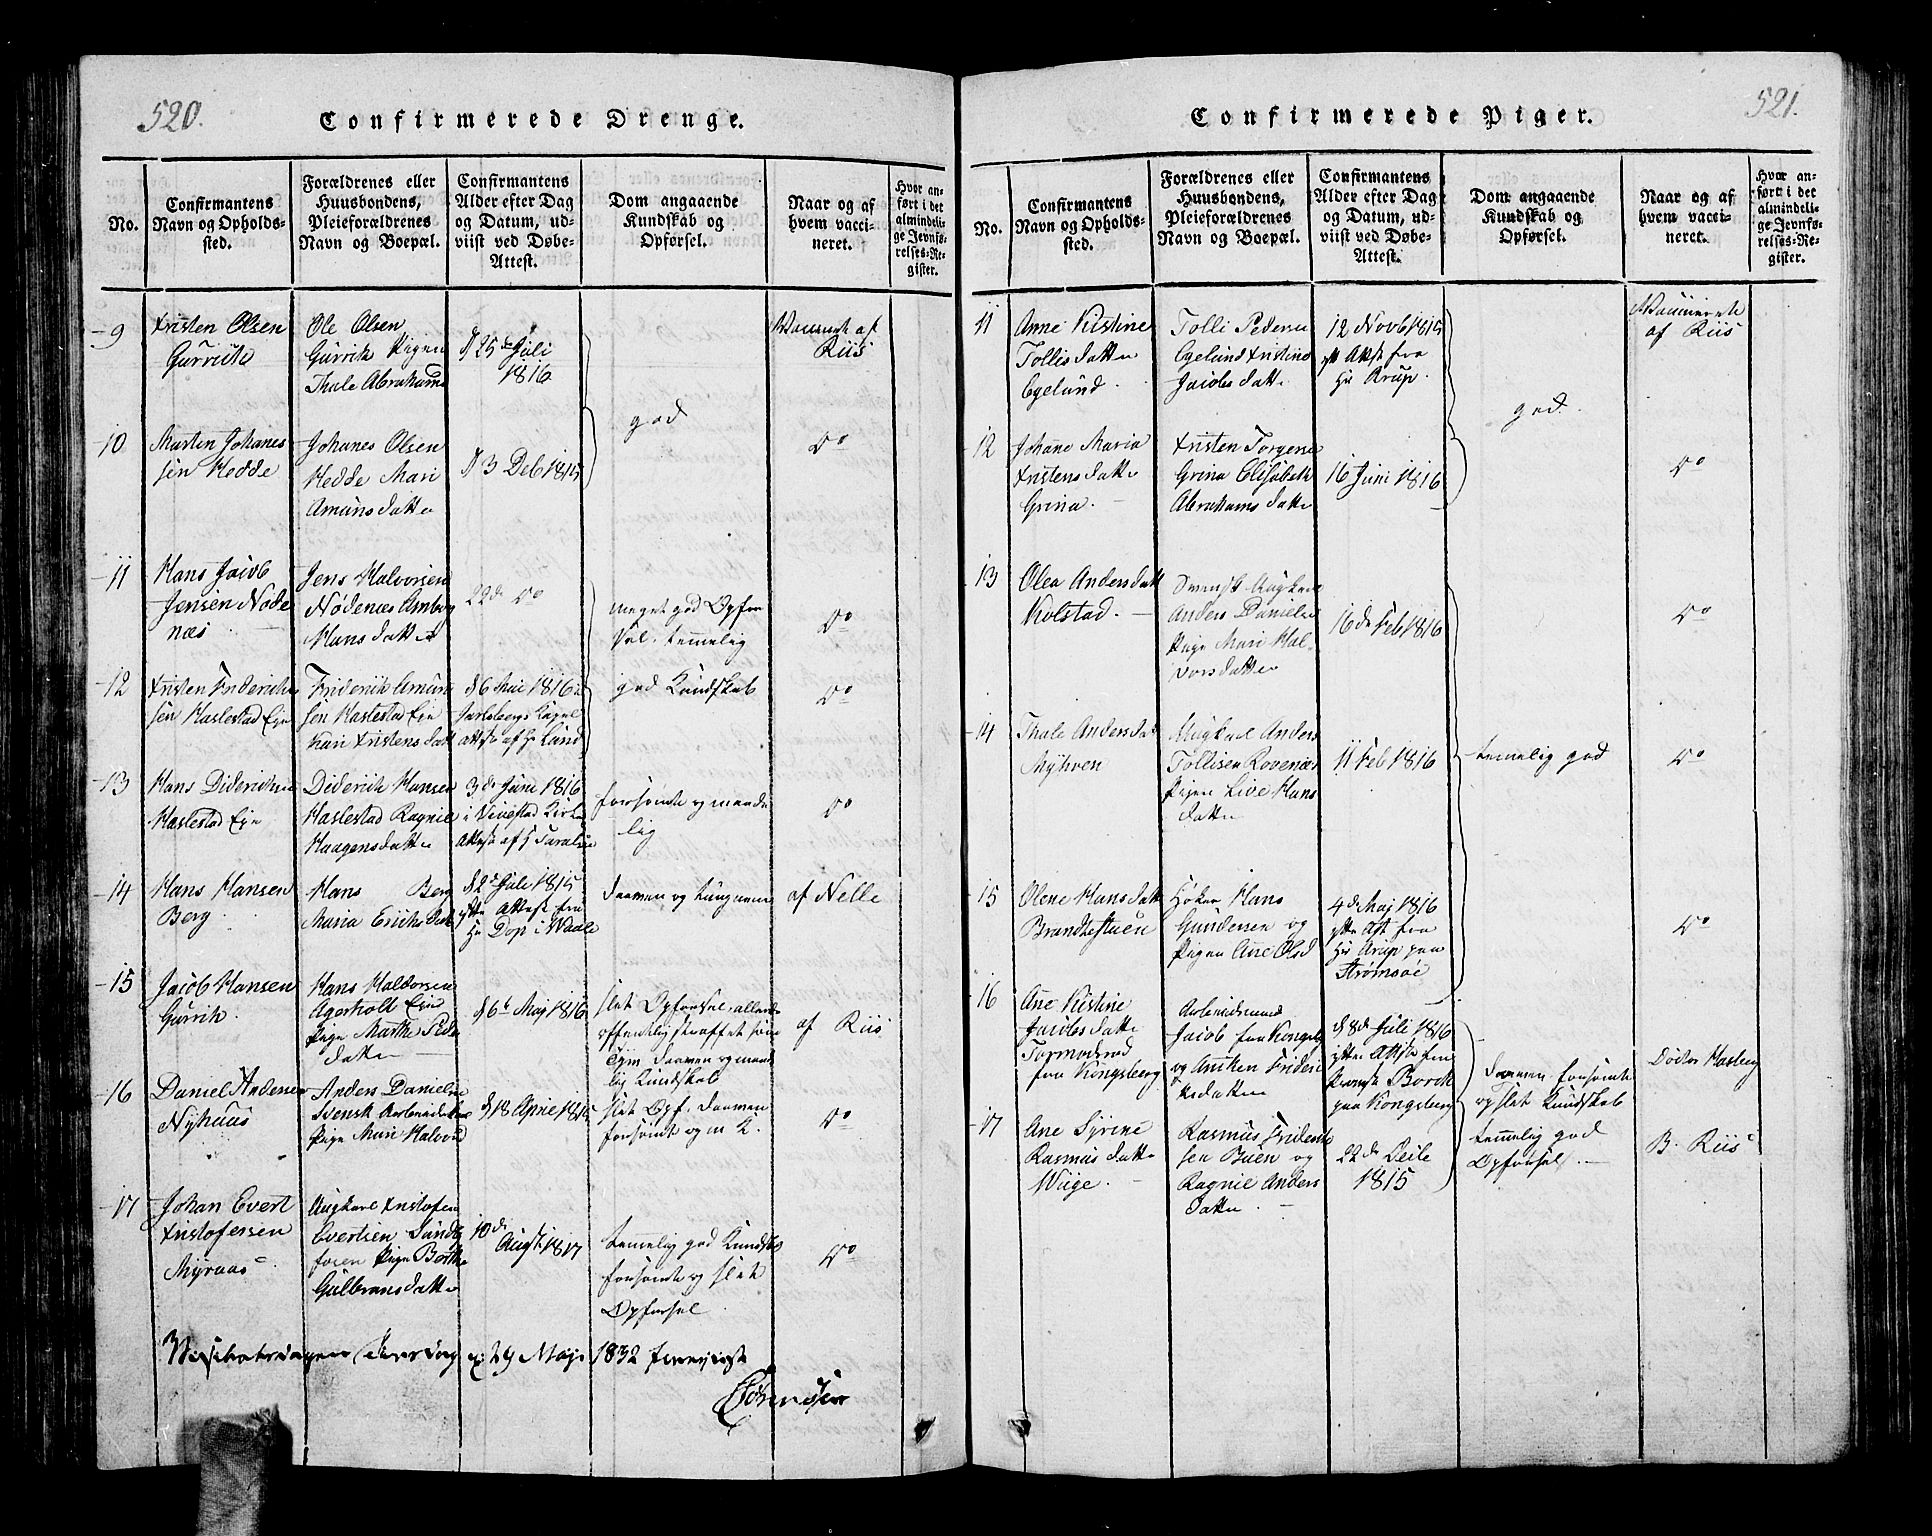 520.
Confirmerede Drenge.
No.
Confirmantens
Navn og Opholds-
sted.
Forældrenes eller
Huusbondens,
Pleieforældrenes
Navn og Boepæl.
Confirmantens
Alder efter Dag
og Datum, ud-
viist ved Døbe-
Attest.
Dom angaaende
Kundskab og
Opførsel.
Naar og af
hvem vacci-
neret.
Hvor an-
ført i det
almindeli-
ge Jevnfø-
relses-Re-
gister.
9
Cristen Olsen
Gurrik
Ole Olsen
Gurrik Pigen
Thale Abrahams
d 25de Juli
1816
god
af
Riis
10
Marten Johanes
sen Hedde
Johanes Olsen
Hedde Mari
Amunsdatter
d 3 Deb 1815
do
11
Hans Jacob
Jensen Nøde
næs
Jens Halvorsen
Nødenæs
Hansdatter
22de do
meget god Opfør
sel. temelig
god Kundskab
do
12
Cristen Friderich
sen Haslestad Eje
Friderik Amun
sen Haslestad Eje
Kari Cristensdatt
d 6 Mai 1816 i
Jarlsbergs Kapel
attest af Hr Lund
do
13
Hans Diderichsen
Haslestad Eje
Diderich Hansen
Haslestad Ragnie
Haagensdatter
3de Juni 1816
i Vivestad Kirke
Attest af H
forsømt og maade
lig
do
14
Hans Hansen
Berg
Hans Berg
Maria Erichsdatt
d 2de Juli 1815
ytte Attest fra
Hr Dop i Waale
doven og tungnem
af Nelle
15
Jacob Hansen
Gurrik
Hans Haldorsen
Agerholt Eje
Pige Marthe Peder
datter
d 6te Maj 1816
slet Opførsel, allerede
offentlig straffet som
Tyv doven og maade
lig Kundskab
af Riis
16
Daniel Andersen
Nyhuus
Anders Danielsen
Svensk Arbeidskar
Pige Mari Halvord
d 18 Aprie 1815
slet Opf. doven
forsømt og m K.
do
17
Johan Evert
Cristofersen
Myraas
Ungkarl Cristofer
Evertsen Sunds
fosen Pige Berthe
Gulbransdatter
10de
Augt. 1817
temelig god Kundskab
forsømt og slet
Opførsel
do
d: 29 Maji 1832

521.
Confirmerede Piger.
No.
Confirmantens
Navn og Opholds-
sted.
Forældrenes eller
Huusbondens,
Pleieforældrenes
Navn og Boepæl.
Confirmantens
Alder efter Dag
og Datum, ud-
viist ved Døbe-
Attest.
Dom angaaende
Kundskab og
Opførsel.
Naar og af
hvem vacci-
neret.
Hvor an-
ført i det
almindeli-
ge Jevnfø-
relses-Re-
gister.
11
Anne Kistine
Tollisdatter
Egelund.
Tolli Peders
Egelund Cristine
Jacobsdatter
12 Novb 1815
ytt Attst fra
Hr Krup.
god.
af Riis
12
Johane Maria
Cristensdatter
Grina.
Cristen Torgers
Grina Elisabeth
Abrahamsdatter
16 Juni 1816
do
13
Olea Andersdatt
Kolstad.
Svensk Ungkarl
Anders Daniels
Pige Mari Hal-
vorsdatter
16de Feb 1816
do
14
Thale Andersdat
Myhren
Ungkarl Anders
Tollisen Rovenæs
Pigen Live Hans
datter
11 Feb 1816
temelig god
do
15
Olene Hansdatt
Brandtestuen
Høker Hans
Gundersen og
Pigen Ane Olsd
4de Maj 1816
ytte Att fra
Hr Arup paa
Strømsøe
do
16
Ane Kistine
Jacobsdatter
Tormodsrød
fra Kongsberg
Arbeidsmand
Jacob fra Kongsb
og Aniken Frideri
ksdatter
d 8de Juli 1816
ytte Attst fra
Provst Borch
paa Kongsberg
doven forsømt
og slet Kundskab
Docter Hasberg
17
Ane Syrine
Rasmusdatter
Wiige.
Rasmus Friderik
sen Buen og
Ragnie Anders
datter.
22de
1815
temmelig god
Opførsel.
B. Riis